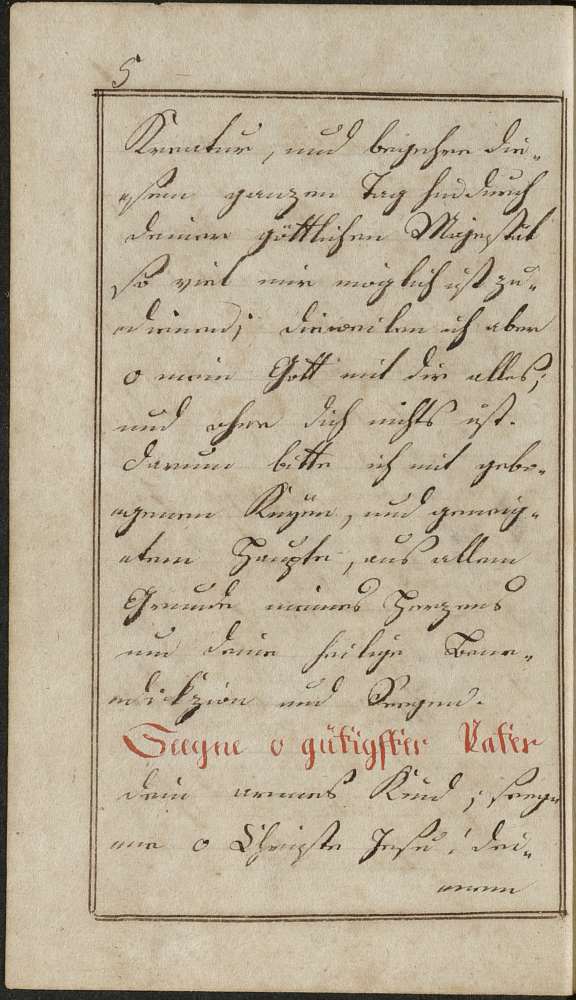 5
Kreatur, und begehre die-
sem ganzen Tag hindurch
deiner göttlichen Majestät
so viel mir möglich ist zu-
dienen; dieweilen ich aber
o mein Gott mit dir alles;
und ohne dich nichts ist.
darum bitte ich mit gebo-
genen Knÿen, und geneig-
tem Haupte, aus allem
Grunde meines Herzens
um deine heilige Bene-
dikzion und Seegen.
Seegne o gütigster Vater
dein armes Kind; seeg-
ne o Christe Jesu! dei-
nem